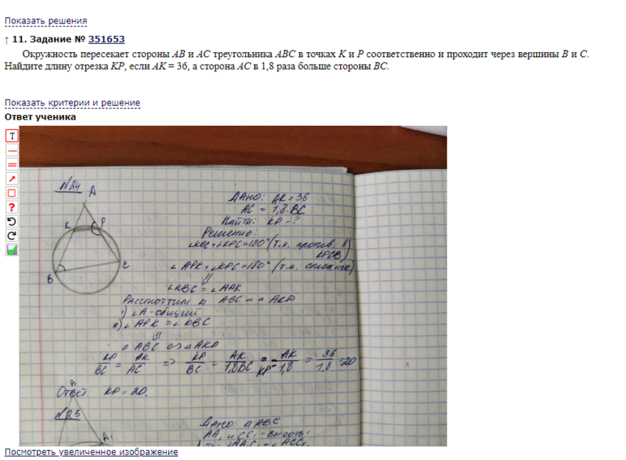 Показать решения
↑ 11. Задание № 351653
Окружность пересекает стороны AB и AC треугольника ABC в точках K и P соответственно и проходит через вершины B и C.
Найдите длину отрезка KP, если AK = 36, а сторона AC в 1,8 раза больше стороны BC.
Показать критерии и решение
Ответ ученика
T
?
№24
A
K P
B C
Дано: AK = 36
AC = 1,8·BC
Найти: KP - ?
Решение:
∠KBC + ∠KPC = 180° (т.к. против. в
KPCB)
∠APK + ∠KPC = 180° (т.к. смежные)
⇓
∠KBC = ∠APK
Рассмотрим △ ABC и △ AKP
1) ∠A - общий
2) ∠APK = ∠KBC
⇓
△ ABC ∽ △AKP
KP/BC = AK/AC ⇒ KP/BC = AK/1,8BC = KP = AK/1,8 = 36/1,8 = 20
Ответ: KP = 20.
B
№25
Дано: △ABC
AA₁ и CC₁ - высоты
A₁
Посмотреть увеличенное изображение